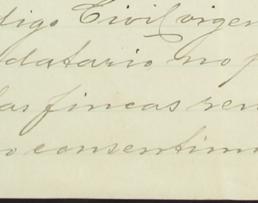 digo Civil vigen
datario no p
las fincas ren
o consentimi